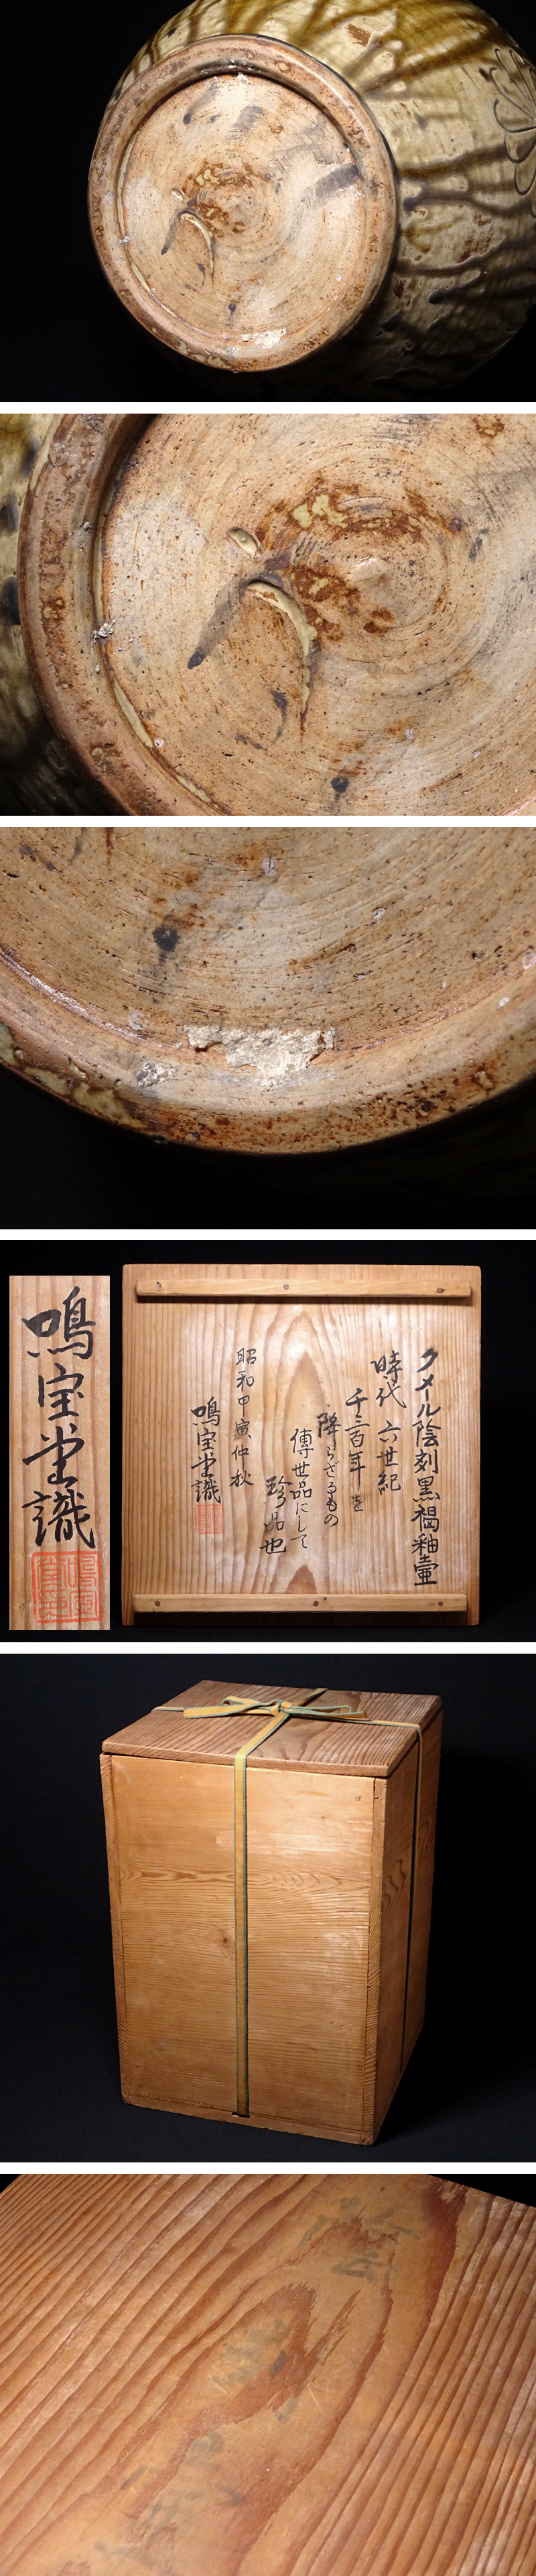 鳴宝堂識
クメール陰刻黒褐釉壷
時代 六世紀
千三百年を
降らざるもの
傳世品にして
珍品也
昭和甲寅仲秋
鳴宝堂識